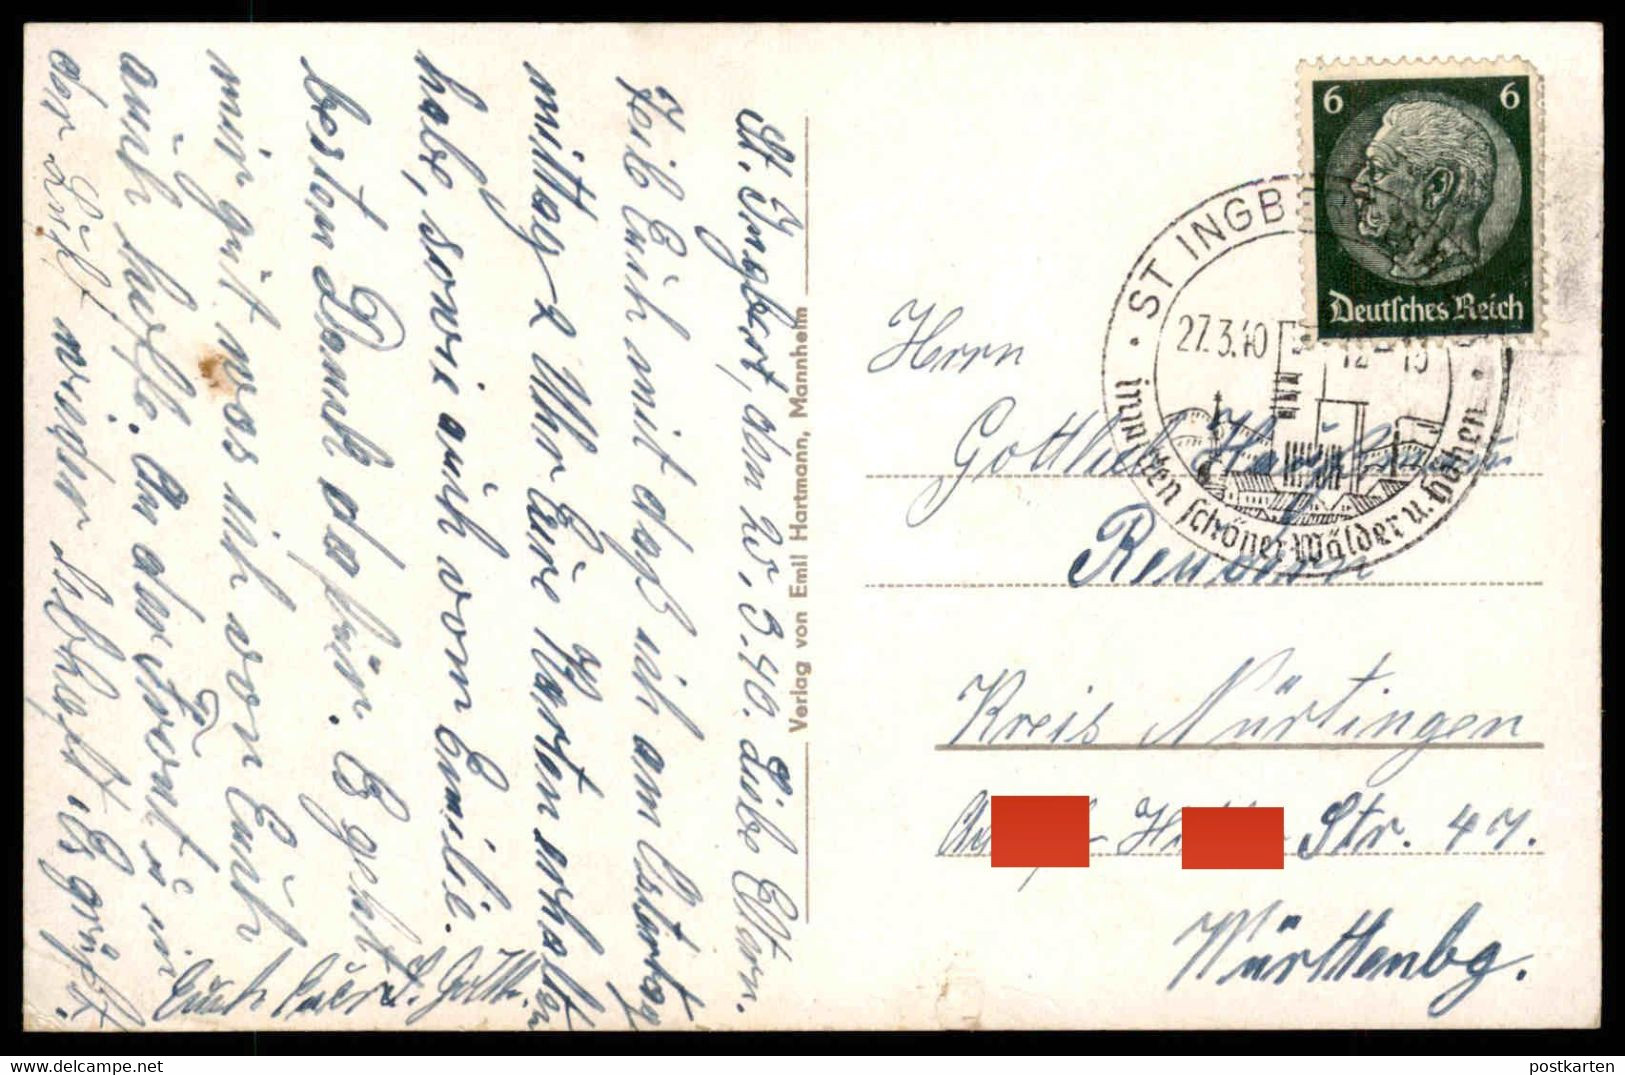 St. Ingbert, den 25.3.40. Liebe Eltern.
Teile Euch mit daß ich am Ostertag
mittag 2 Uhr Eure Karten erhalten
habe, sowie auch vom Emilie.
besten Dank dafür. Es geht
mir gut was ich von Euch
auch hoffe. An der Front ist in
der Luft wieder lebhaft. Es grüßt
Euch Euer L. Gottl.
Verlag von Emil Hartmann, Mannheim
6 6
Deutsches Reich
ST INGB
27.3.40
12-15
inmitten schöner Wälder u. Höhen
Herrn
Gottlieb
Reudern
Kreis Nürtingen
Str. 47.
Württenbg.
postkarten